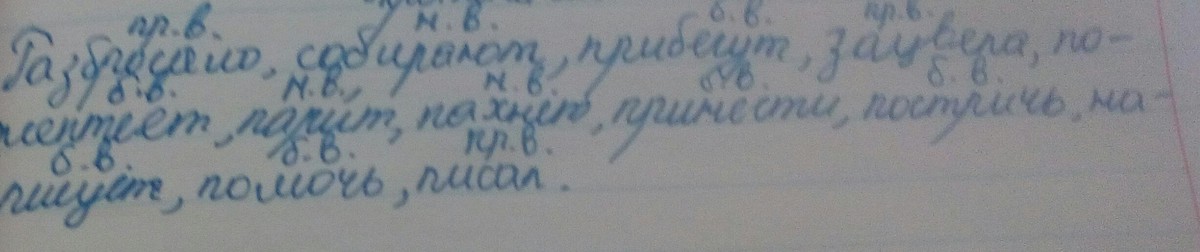 пр.в. н.в. б.в. пр.в.
Разбросано, собирают, прибегут, зацвела, по-
б.в. н.в. н.в. б.в. б.в.
парит, пахнет, принести, постричь, на-
б.в. б.в. пр.в.
пишут, помочь, писал.